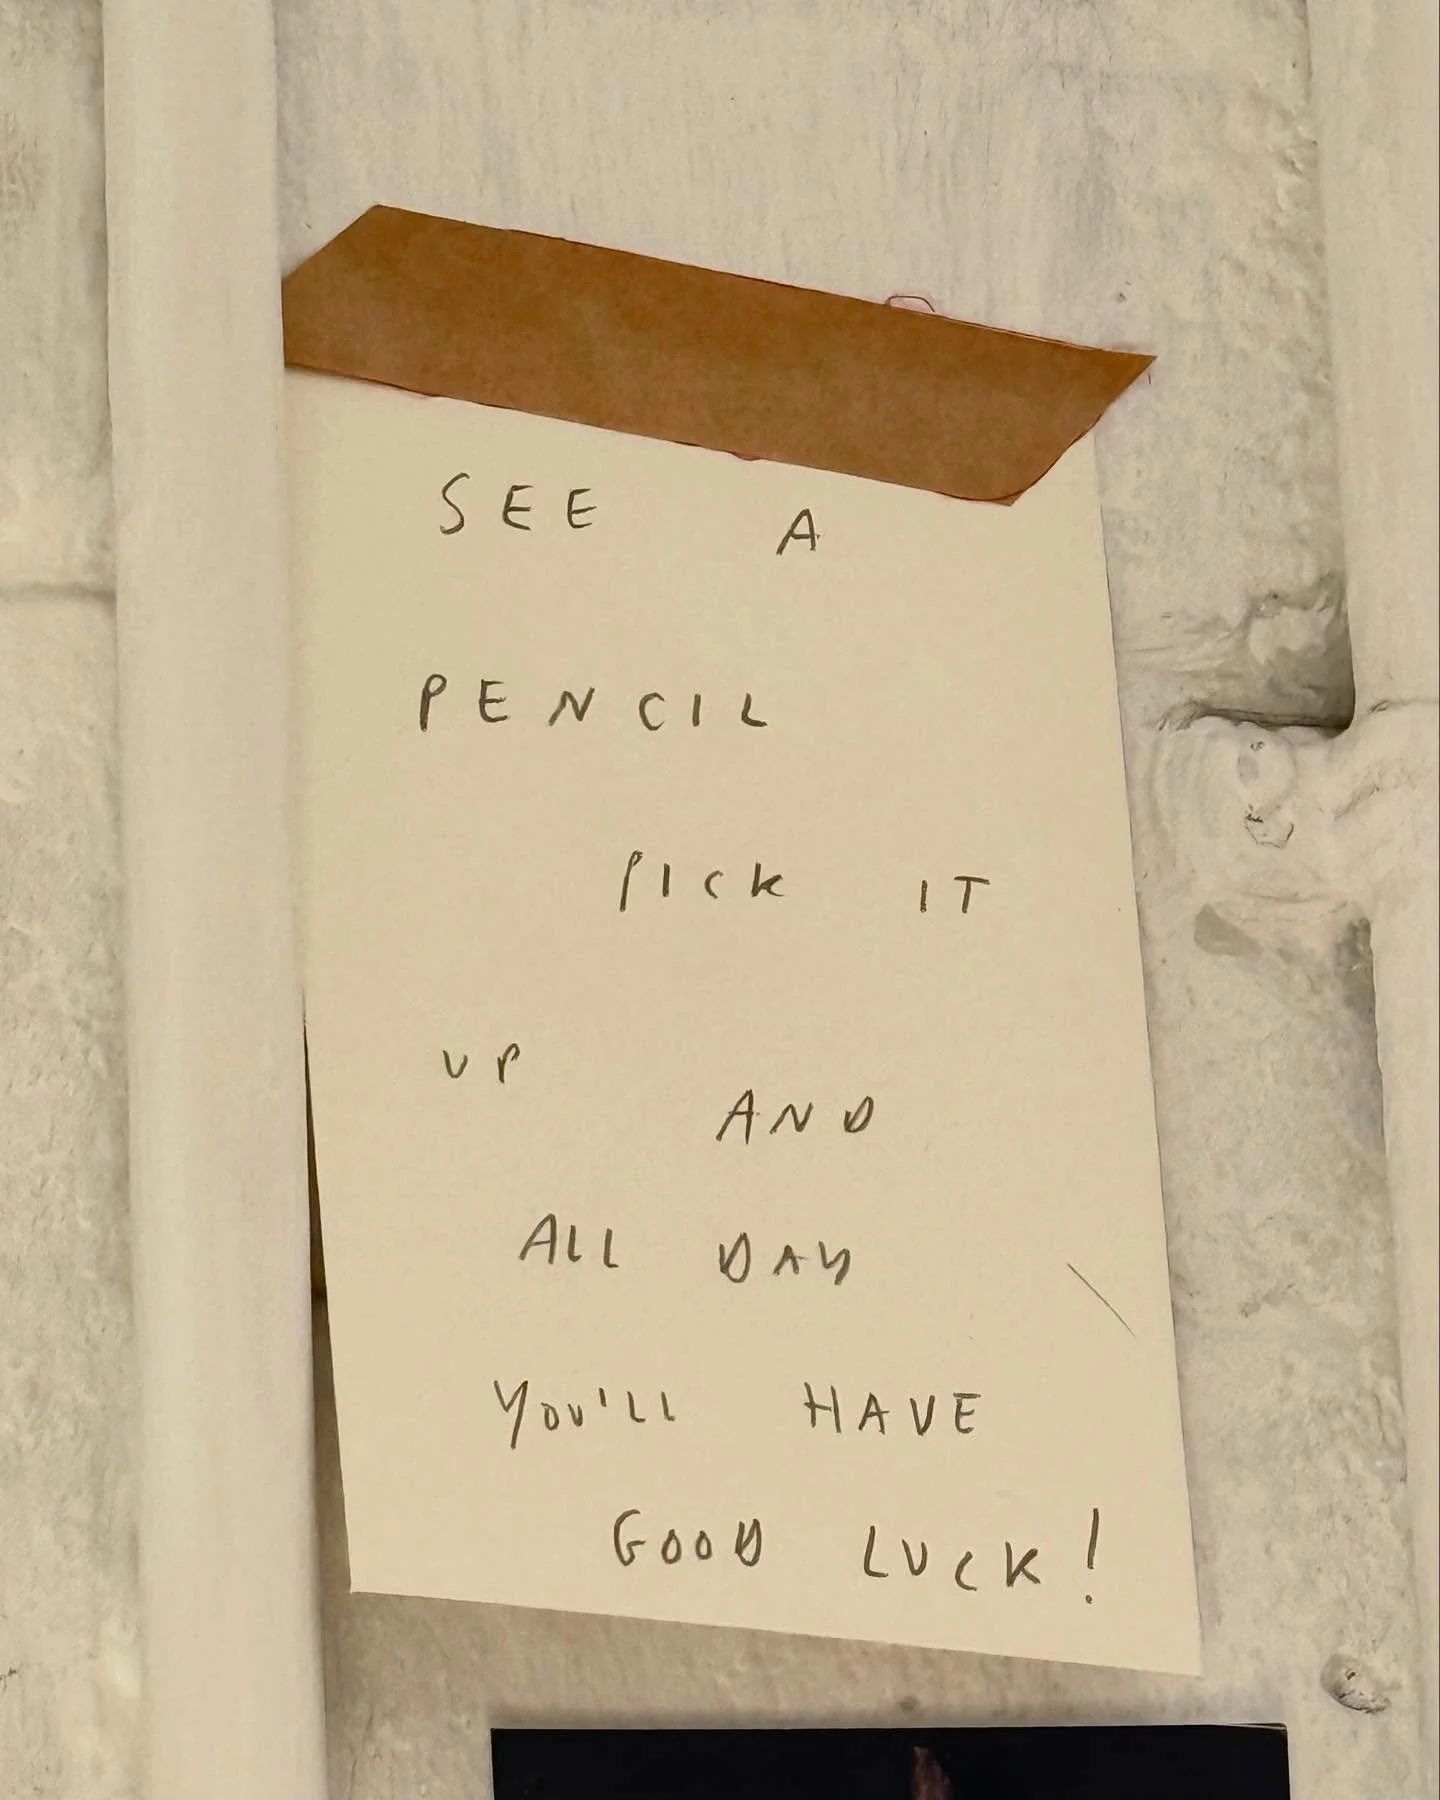 SEE A
PENCIL
PICK IT
UP AND
ALL DAY
YOU'LL HAVE
GOOD LUCK!